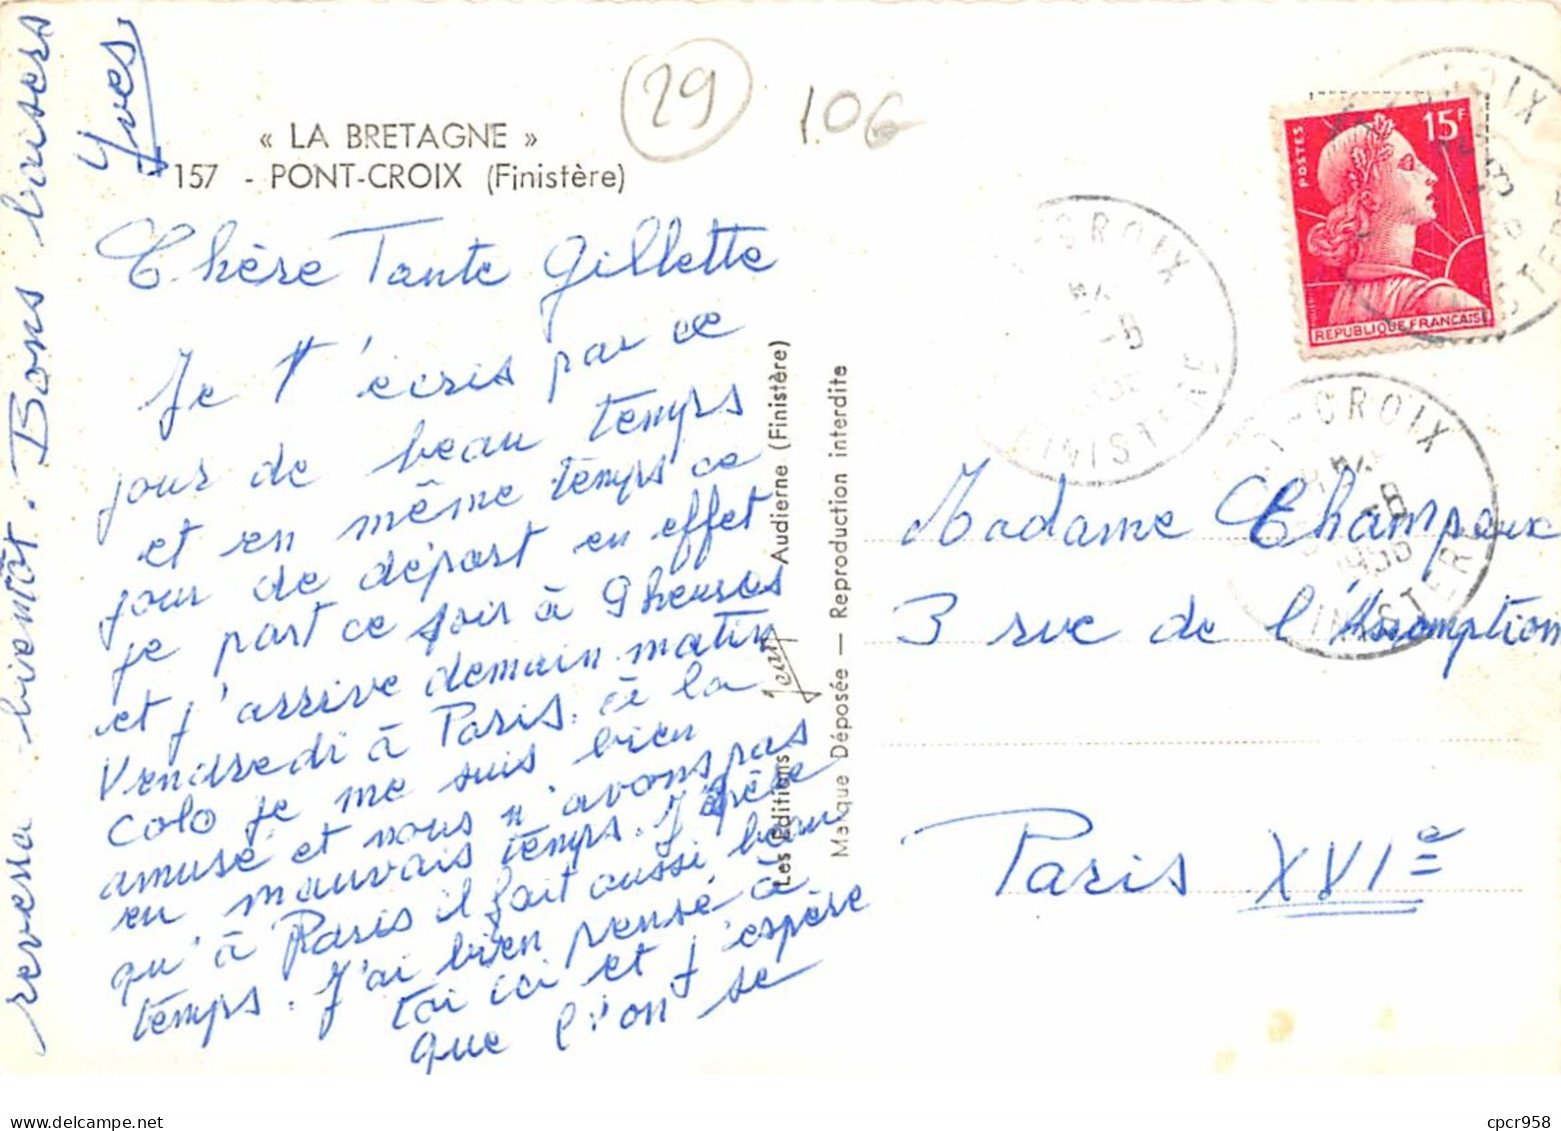 « LA BRETAGNE »
157 - PONT-CROIX (Finistère)
29
106
Chère Tante Gillette
Je t'écris par ce
jour de beau temps
et en même temps ce
jour de départ en effet
je part ce soir à 9 heures
et j'arrive demain matin
Vendredi à Paris. à la
colo je me suis bien
amusé et nous n'avons pas
eu mauvais temps. J'espère
qu'à Paris il fait aussi beau
temps. J'ai bien pensé à
toi ici et j'espère
que l'on se
revera bientôt. Bons baisers
Yves
Les Editions Jean Audierne (Finistère)
Marque Déposée — Reproduction interdite
POSTES
15F
REPUBLIQUE FRANÇAISE
CROIX
-CROIX
FINISTERE
T-CROIX
1956
FINISTERE
Madame Champeux
3 rue de l'Assomption
Paris XVIe
cpcr958